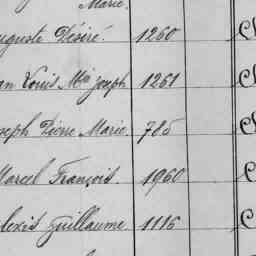 Marie.
uguste Désiré. 1260 C
an Louis Mie Joseph 1261 C
seph Pierre Marie. 785 C
Marcel François. 1960 C
lexis Guillaume. 1116 C